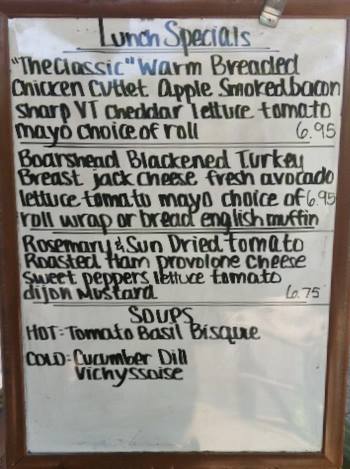 Lunch Specials
"The Classic" Warm Breaded
Chicken Cutlet Apple Smoked bacon
Sharp VT Cheddar lettuce tomato
mayo choice of roll 6.95
Boarshead Blackened Turkey
Breast jack cheese fresh avocado
lettuce tomato mayo choice of 6.95
roll wrap or bread english muffin
Rosemary & Sun Dried tomato
Roasted Ham provolone cheese
sweet peppers lettuce tomato
dijon mustard 6.75
SOUPS
HOT: Tomato Basil Bisque
COLD: Cucumber Dill
Vichyssoise